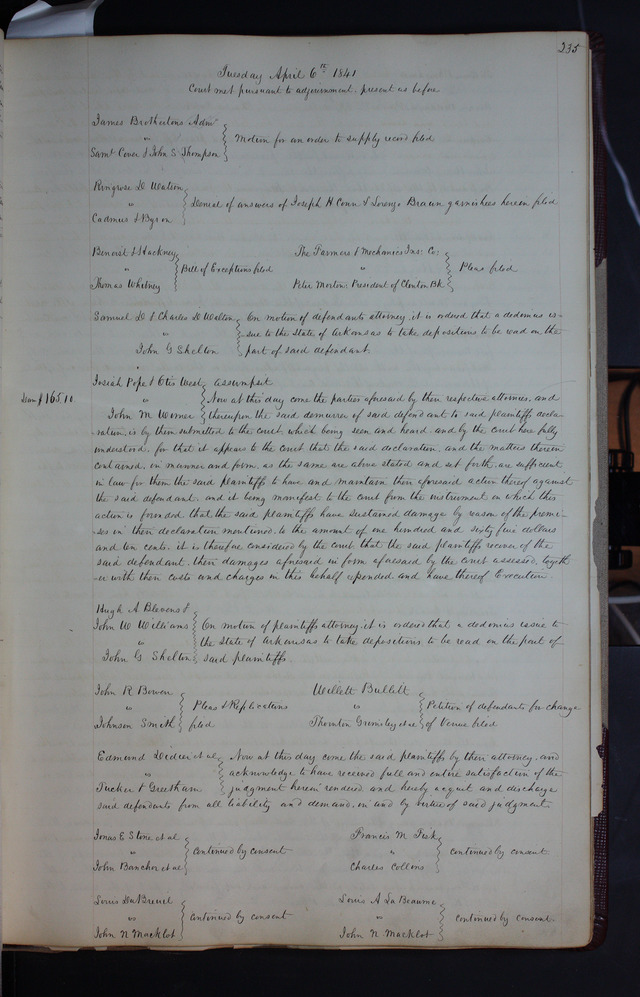 235
Tuesday April 6th 1841
Court met pursuant to adjournment, present as before
James Brotherton's Admr
vs
Saml Cover & John S Thompson
Motion for an order to supply record filed
Ringrose D Watson
vs
Cadmus & Byron
Denial of answers of Joseph H Conn & Lorenzo Brawn garnishees herein filed
Benoist & Hackney
vs
Thomas Whitney
Bill of Exceptions filed
The Farmers & Mechanics Ins: Co:
vs
Peter Morton President of Clinton Bk
Pleas filed
Samuel D & Charles D Walton
vs
John G Shelton
On motion of defendants attorney, it is ordered that a dedimus is-
sue to the State of Arkansas to take depositions to be read on the
part of said defendant.
Josiah Pope & Otis West
vs
John M Wimer
assumpsit
Dam $165.10
Now at this day come the parties aforesaid by their respective attornies, and
thereupon the said demurrer of said defendant to said plaintiffs decla-
ration, is by them submitted to the court which being seen and heard, and by the court here fully
understood, for that it appears to the court that the said declaration, and the matters therein
contained, in manner and form, as the same are above stated and set forth, are sufficient
in law for them the said plaintiffs to have and maintain their aforesaid action thereof against
the said defendant, and it being manifest to the court from the instrument on which this
action is founded, that the said plaintiffs have sustained damage by reason of the premi-
ses in their declaration mentioned, to the amount of one hundred and sixty five dollars
and ten cents, it is therefore considered by the court that the said plaintiffs recover of the
said defendant, their damages aforesaid in form aforesaid by the court assessed, togeth-
er with their costs and charges in this behalf expended, and have thereof Execution.
Hugh A Blevens &
John W Williams
vs
John G Shelton
On motion of plaintiffs attorney, it is ordered that a dedimus issue to
the State of Arkansas to take depositions to be read on the part of
said plaintiffs.
John R Bowen
vs
Johnson Smith
Pleas & Replications
filed
Willett Bullitt
vs
Thornton Grimsley et al
Petition of defendants for change
of Venue filed
Edmund et al
vs
Tucker & Greetham
Now at this day come the said plaintiffs by their attorney, and
acknowledge to have received full and entire satisfaction of the
judgment herein rendered, and hereby acquit and discharge
said defendants from all liability and demand, in and by virtue of said judgment.
Jonas E Stone et al
vs
John Banchor et al
Continued by consent
Francis M Fisk
vs
Charles Collins
Continued by consent
Louis DuBreuil
vs
John N Macklot
Continued by consent
Louis A LaBeaume
vs
John N Macklot
Continued by consent